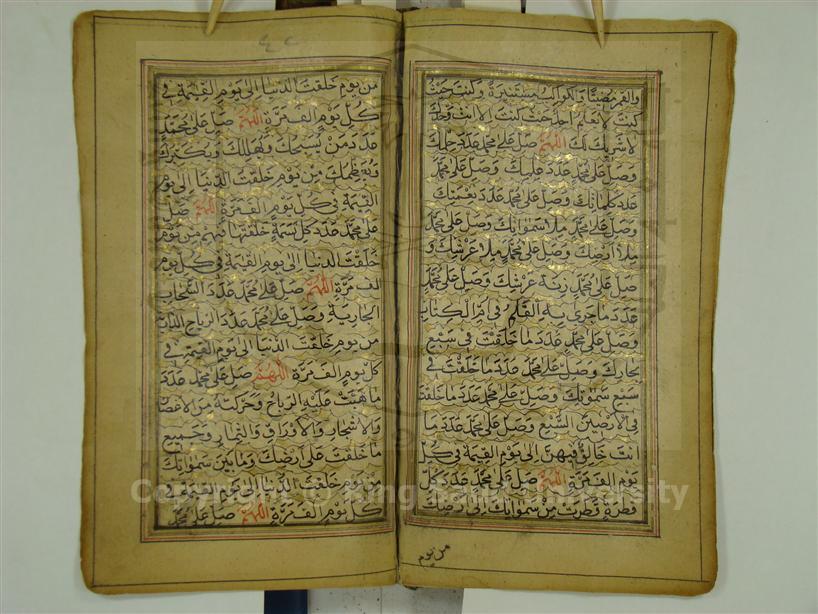 والقمر مضيئا والكواكب مستنيرة وكنت حيث
كنت لا يعلم احد حيث كنت الا انت وحدك
لا شريك لك اللهم صل على محمد عدد حلمك
وصل على محمد عدد علمك وصل على محمد
عدد كلماتك وصل على محمد عدد نعمتك
وصل على محمد ملا سمواتك وصل على محمد
ملا ارضك وصل على محمد ملا عرشك و
صل على محمد زنة عرشك وصل على محمد
عدد ما جرى به القلم في ام الكتاب
وصل على محمد عدد ما خلقت في سبع
بحارك وصل على محمد عدد ما خلقت في
سبع سمواتك وصل على محمد عدد ما خلقت
في الارضين السبع وصل على محمد عدد ما
انت خالق فيهن الى يوم القيمة في كل
يوم الف مرة اللهم صل على محمد عدد كل
قطرة قطرت من سمواتك الى ارضك
من يوم
من يوم خلقت الدنيا الى يوم القيمة في
كل يوم الف مرة اللهم صل على محمد
عدد من يسبحك ويهللك ويكبرك
ويعظمك من يوم خلقت الدنيا الى يوم
القيمة في كل يوم الف مرة اللهم صل
على محمد عدد كل نسمة خلقتها فيهم من يوم
خلقت الدنيا الى يوم القيمة في كل يوم
الف مرة اللهم صل على محمد عدد السحاب
الجارية وصل على محمد عدد الرياح الذاريات
من يوم خلقت الدنيا الى يوم القيمة في
كل يوم الف مرة اللهم صل على محمد عدد
ما هبت عليه الرياح وحركته من الاغصان
والاشجار والاوراق والثمار وجميع
ما خلقت على ارضك وما بين سمواتك
من يوم خلقت الدنيا الى يوم القيمة في
كل يوم الف مرة اللهم صل على محمد
Copyright © King Saud University